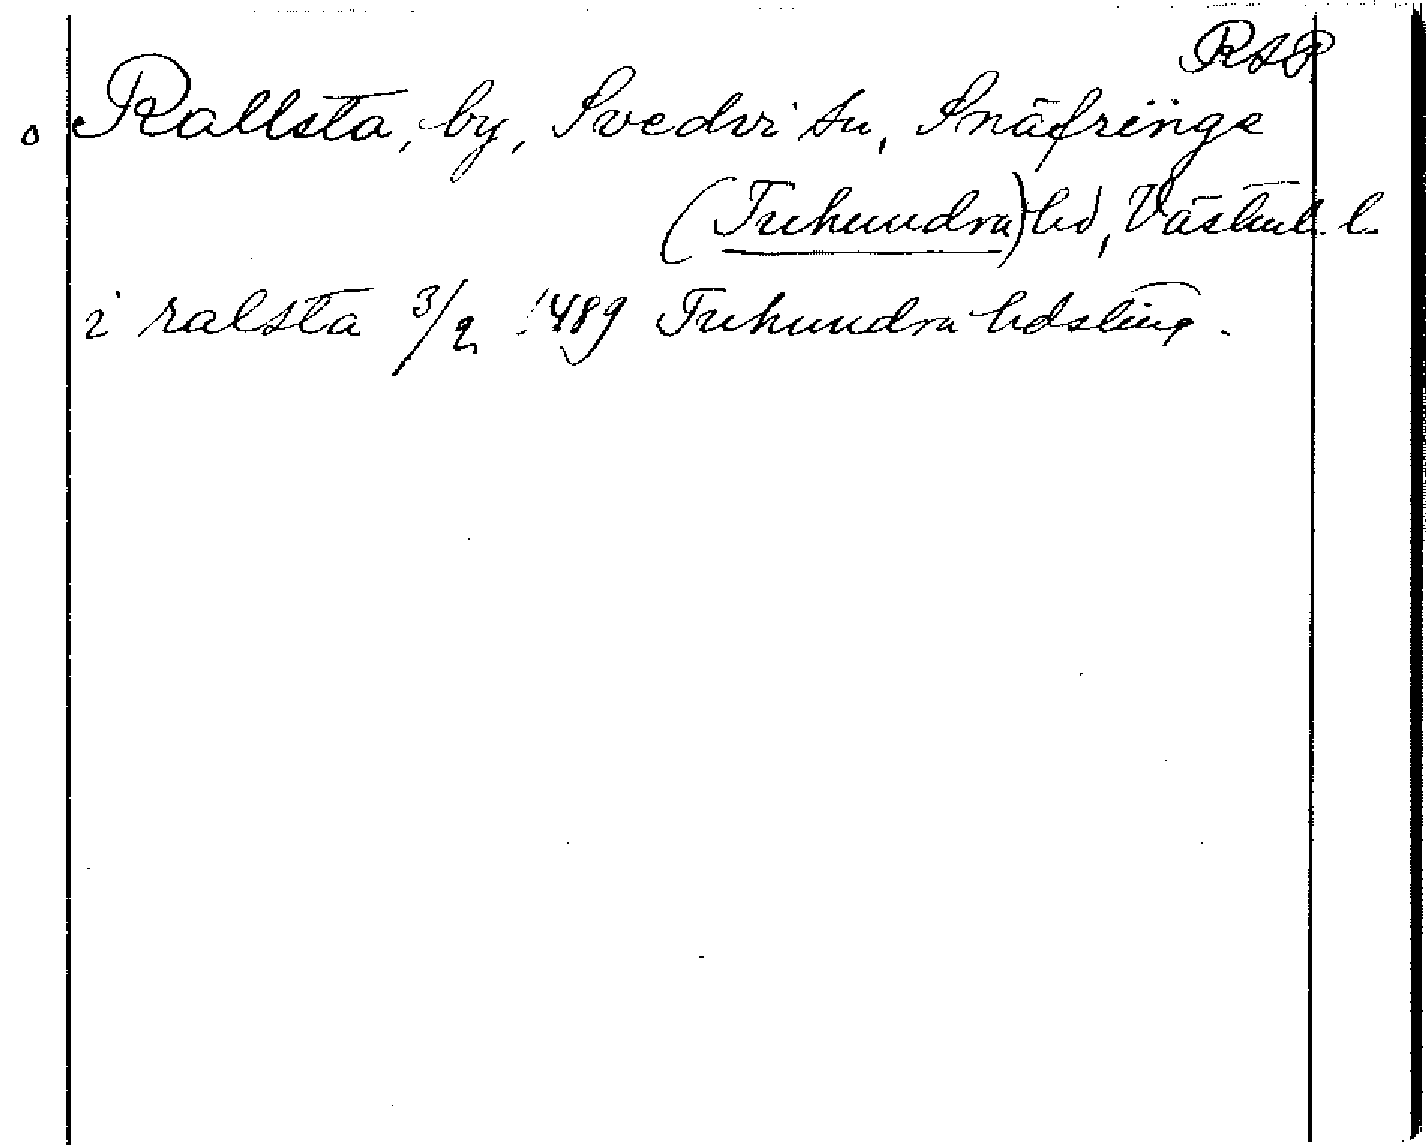 RAP
o Rallsta, by, Svedvi sn, Snäfringe
(Tuhundra) hd, Västml. l.
i ralsta 3/2 1489 Tuhundra hdsting.